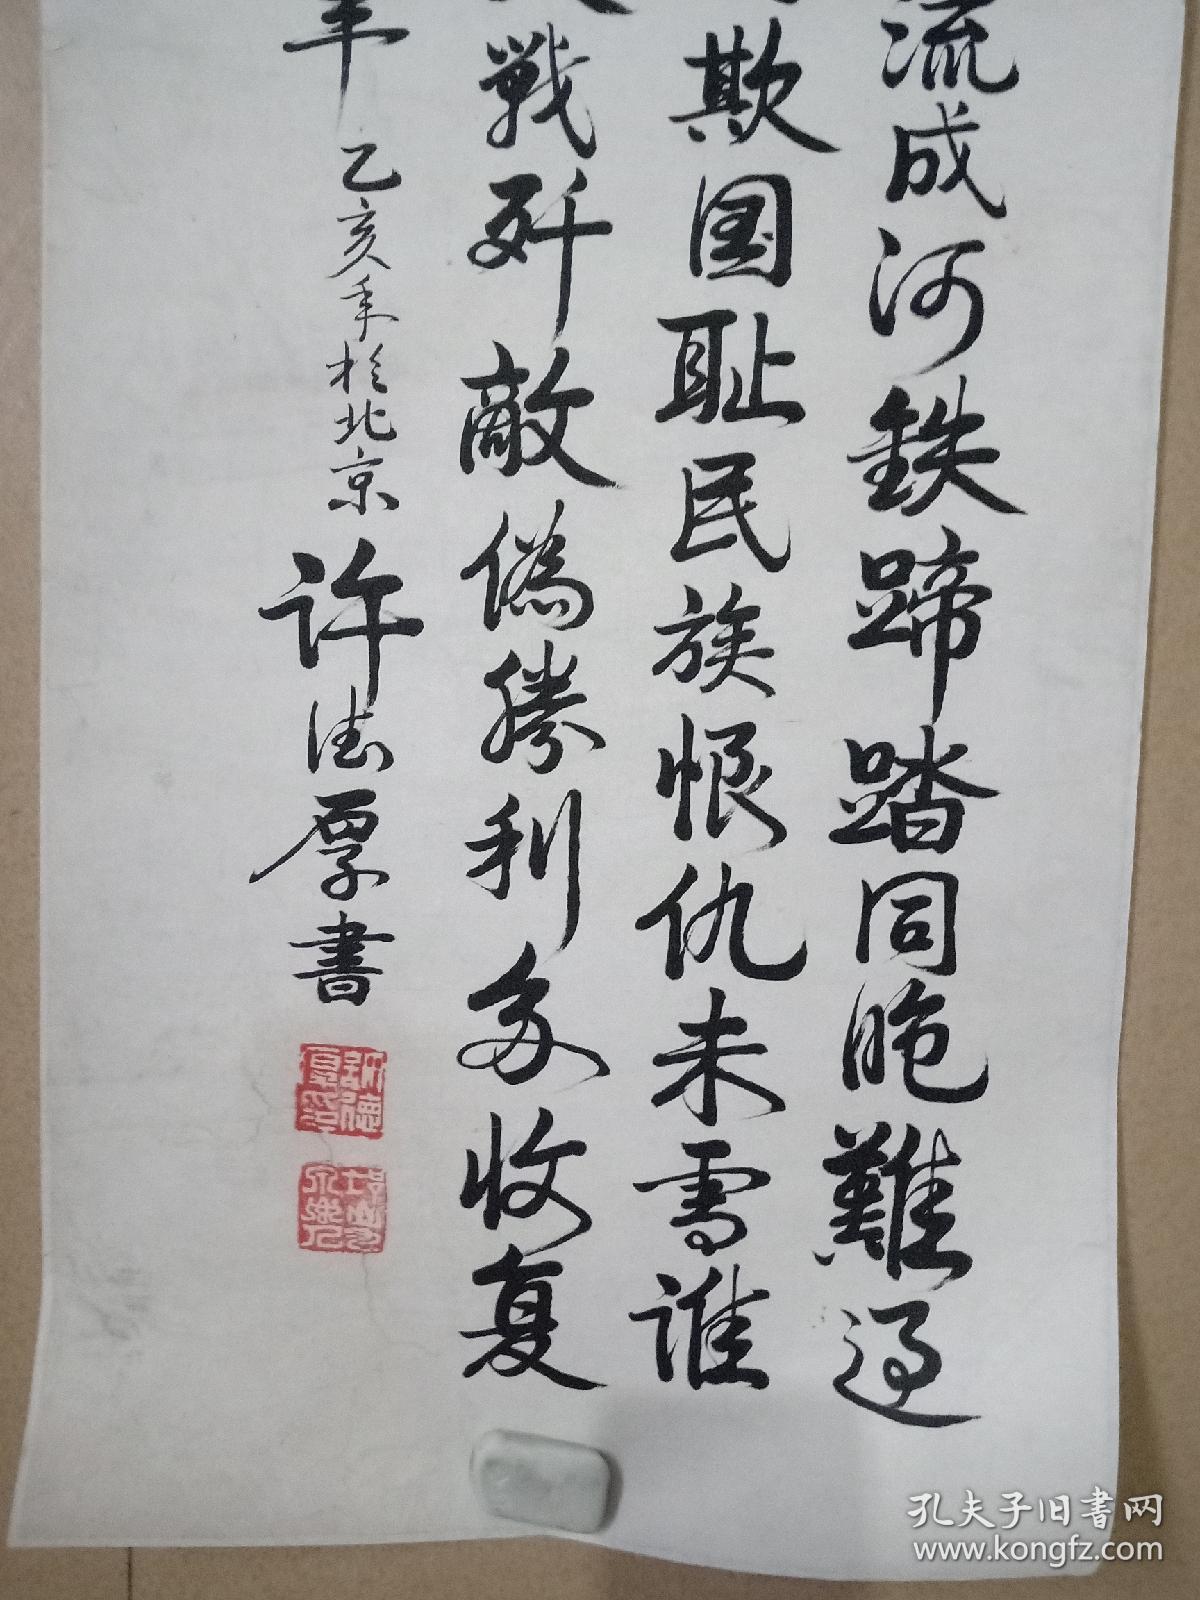 流成河鉄蹄踏同胞難过
欺国耻民族恨仇未雪谁
戰歼敵偽勝利多收复
年
乙亥年於北京
许德厚書
許德厚印
孔夫子旧书网
www.kongfz.com